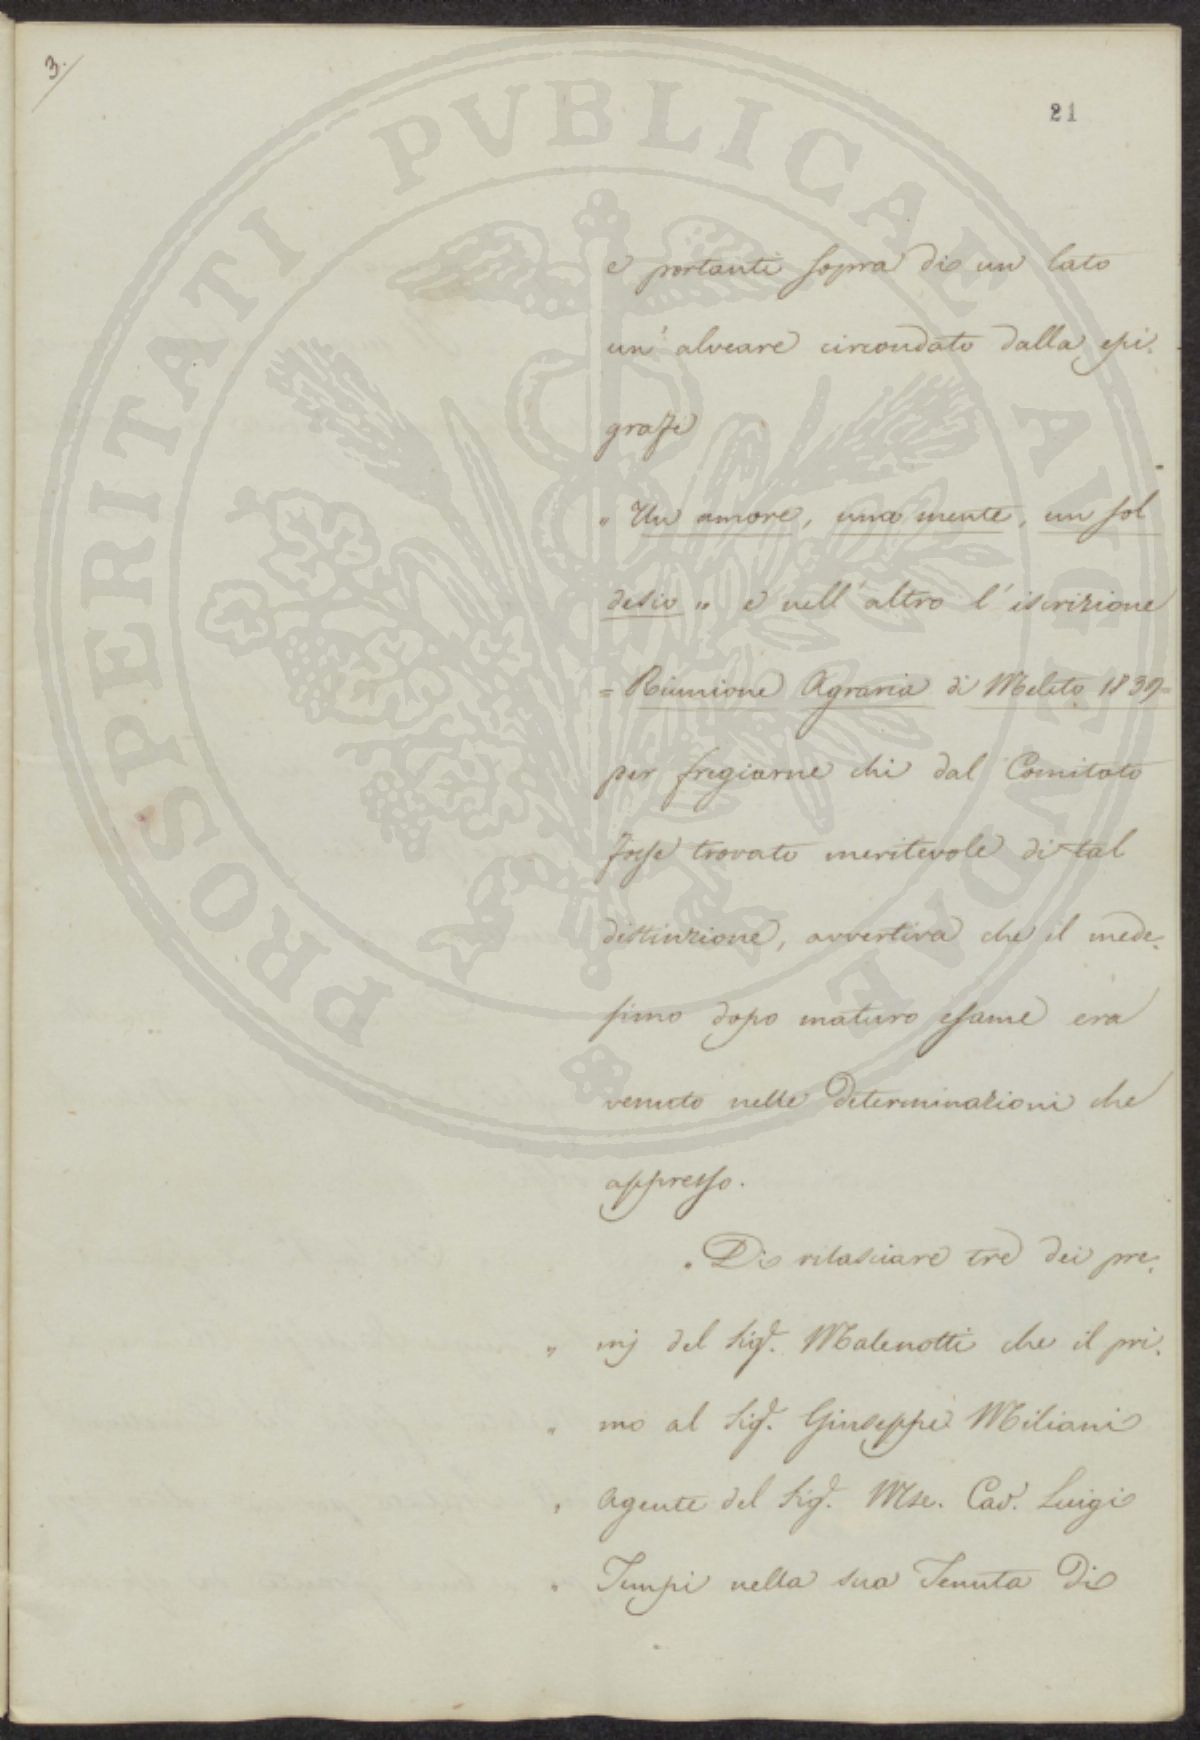 3.
21
PROSPERITATI PVBLICAE AVGENDAE
e portanti sopra di un lato
un' alveare circondato dalla epi:
grafe
" Un amore, una mente, un sol
desio " e nell' altro l' iscrizione
= Riunione Agraria di Meleto 1839 =
per fregiarne chi dal Comitato
fosse trovato meritevole di tal
distinzione, avvertiva che il mede:
simo dopo maturo esame era
venuto nelle determinazioni che
appresso.
" Di rilasciare tre dei pre:
" mj del Sigr. Malenotti che il pri:
" mo al Sigr. Giuseppe Miliani
" Agente del Sigr. Mse. Cav. Luigi
" Tempi nella sua Tenuta Di